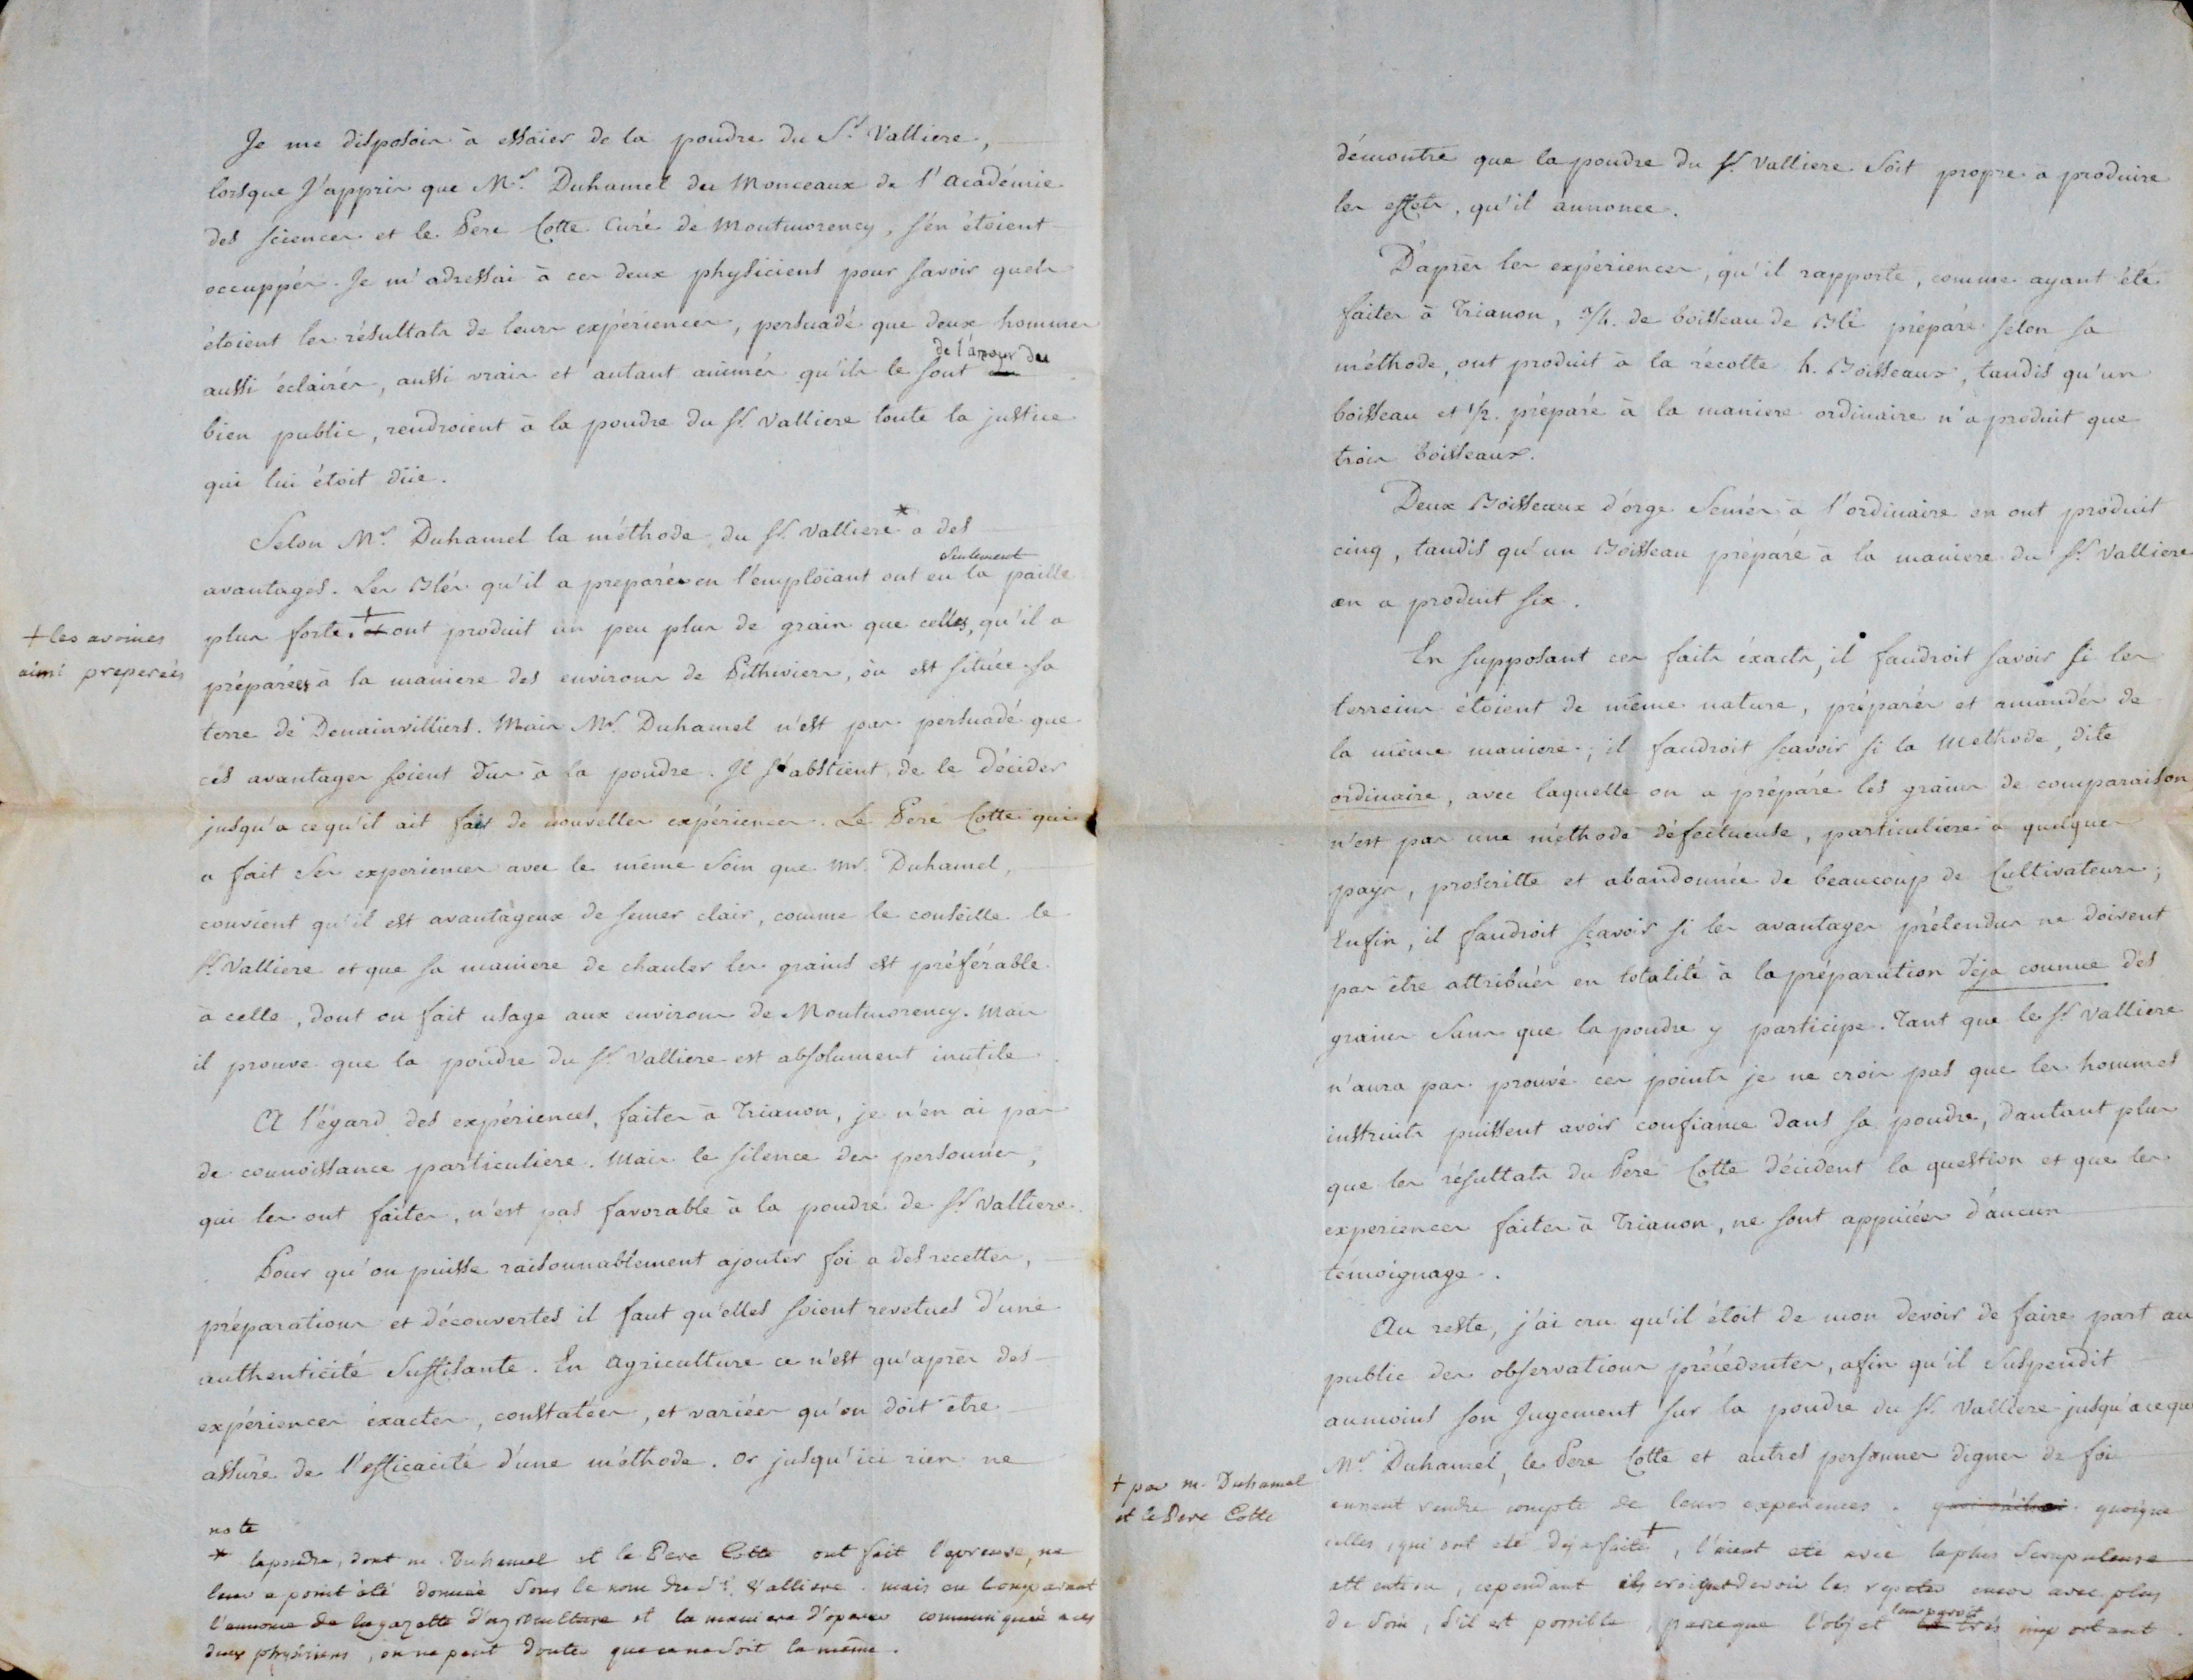 Je me disposois à essaier de la poudre du Sr. Valliere,
lorsque J'appris que Mr. Duhamel du Monceaux de l'académie
des sciences et le Pere Cotte Curé de Montmorency, s'en étoient
occuppés. Je m'adressai à ces deux physiciens pour savoir quels
étoient les résultats de leurs expériences, persuadé que deux hommes
de l'amour du
aussi éclairés, aussi vrais et autant animés qu'ils le sont
bien public, rendroient à la poudre du Sr. Valliere toute la justice
qui lui étoit düe.
Selon Mr. Duhamel la méthode du Sr. Valliere * a des
seulement
avantages. Les Blés qu'il a preparés en l'emploiant ont eu la paille
+ les avoines
plus forte. + et ont produit un peu plus de grain que celles, qu'il a
ainsi preperées
préparées à la maniere des environs de Pithiviers, où est située sa
terre de Denainvilliers. Mais Mr. Duhamel n'est pas persuadé que
ces avantages soient dus à la poudre. Il s'abstient de le décider
jusqu'a ce qu'il ait fait de nouvelles expériences. Le Pere Cotte qui
a fait ses experiences avec le même soin que mr. Duhamel,
convient qu'il est avantageux de semer clair, comme le conseille le
Sr. Valliere et que sa maniere de chauler les grains est préférable
à celle, dont on fait usage aux environs de Montmorency. Mais
il prouve que la poudre du Sr. Valliere est absolument inutile
A l'égard des expériences, faites à Trianon, je n'en ai pas
de connoissance particuliere. Mais le silence des personnes,
qui les ont faites, n'est pas favorable à la poudre de Sr. Valliere.
Pour qu'on puisse raisonnablement ajouter foi a des recettes,
préparations et découvertes il faut qu'elles soient revetues d'une
authenticité suffisante. En agriculture ce n'est qu'après des
expériences éxactes, constatées, et variées qu'on doit être
assuré de l'efficacité d'une méthode. Or jusqu'ici rien ne
note
* la poudre, dont m. Duhamel et le Pere Cotte ont fait l'epreuve, ne
leur a point été donnée sous le nom du Sr. Valliere. mais en comparant
l'annonce de la gazette d'agriculture et la maniere d'operer communiquée a ces
deux physiciens, on ne peut douter que ce ne soit la même.
démontre que la poudre du Sr. Valliere soit propre a produire
les effets, qu'il annonce.
D'après les expériences, qu'il rapporte, comme ayant été
faites à Trianon, 3/4. de boisseau de Blé préparé selon sa
méthode, ont produit à la récolte 4. Boisseaux, tandis qu'un
boisseau et 1/2. préparé à la maniere ordinaire n'a produit que
trois boisseaux.
Deux Boisseaux d'orge semés à l'ordinaire en ont produit
cinq, tandis qu'un Boisseau préparé à la maniere du Sr. Valliere
en a produit six.
En supposant ces faits éxacts, il faudroit savoir si les
terreins étoient de même nature, préparés et amandés de
la même maniere; il faudroit sçavoir si la Methode, dite
ordinaire, avec laquelle on a préparé les grains de comparaison
n'est pas une méthode défectueuse, particuliere a quelques
pays, proscritte et abandonnée de beaucoup de Cultivateurs;
Enfin, il faudroit sçavoir si les avantages prétendus ne doivent
pas être attribués en totalité à la préparation déja connue des
grains sans que la poudre y participe. Tant que le Sr. Valliere
n'aura pas prouvé ces points je ne crois pas que les hommes
instruits puissent avoir confiance dans sa poudre, dautant plus
que les résultats du Pere Cotte décident la question et que les
experiences faites à Trianon, ne sont appuiées d'aucun
témoignage.
Au reste, j'ai cru qu'il étoit de mon devoir de faire part au
public des observations précédentes, afin qu'il suspendit
aumoins son Jugement sur la poudre du Sr. Valliere jusqu'a ce que
Mr. Duhamel, le Pere Cotte et autres personnes dignes de foi
+ par m. Duhamel
et le Pere Cotte
eussent rendu compte de leurs experiences. quoique
celles, qui ont été deja faites +, l'aient eté avec la plus scrupuleuse
attention, cependant ils croient devoir les repeter encor avec plus
leur paroit
de soin, s'il est possible, parceque l'objet est très important.